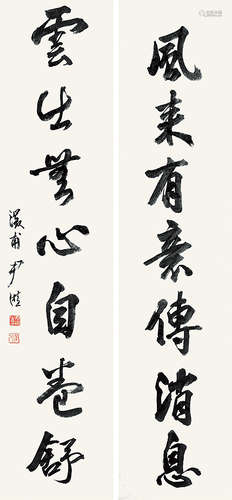 風来有意傳消息
雲出無心自卷舒
甫尹